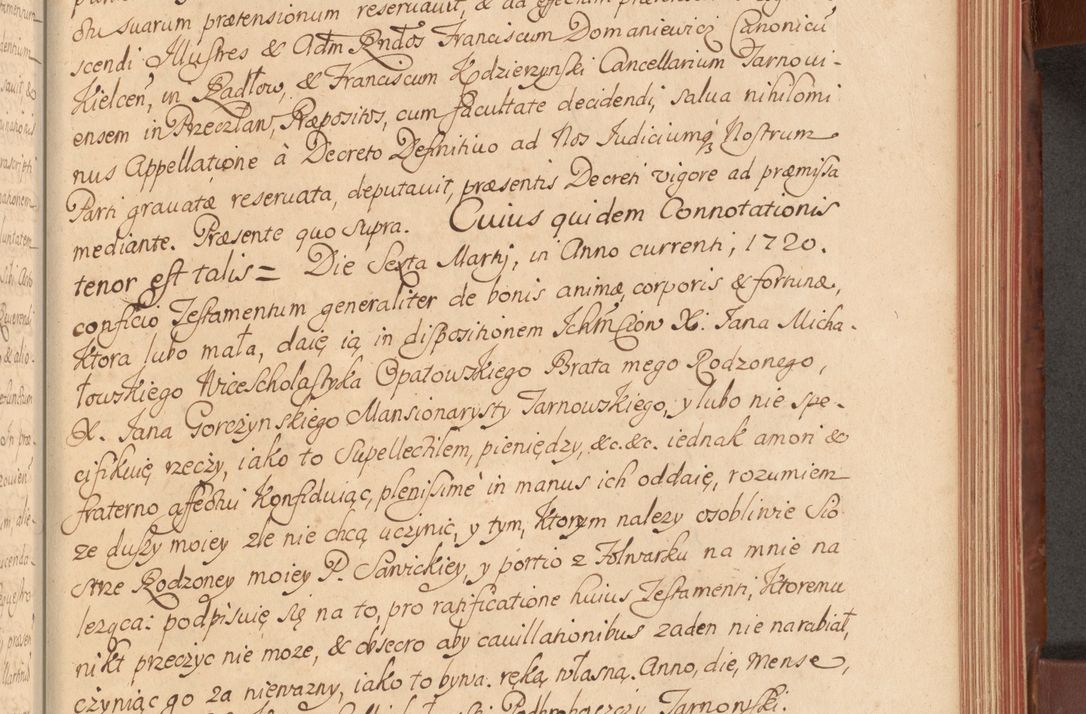 ctu suarum prætensionum reservavit, &
scendi Illustres & Adm Rndos Franciscum Domaniewicz Canonicū
Kielcen, in Radłow, & Franciscum Kodzierzynski Cancellarium Tarnovi-
ensem in Przeczlaw, Præpositos, cum facultate decidendi, salua nihilomi
nus Appellatione à Decreto Definitiuo ad Nos Iudiciumq3 Nostrum
Parti gravatæ reseruata, deputavit, præsentis Decreti vigore ad præmissa
mediante. Præsente quo supra. Cuius quidem Connotationis
tenor est talis = Die Sexta Martij, in Anno currenti, 1720.
conficio Testamentum generaliter de bonis animæ, corporis & fortunæ,
Ktora lubo mała, daię ią in dispositionem Ichmciow X: Iana Micha-
łowskiego Vicescholastyka Opatowskiego Brata mego Rodzonego,
X. Iana Gorczynskiego Mansionarysty Tarnowskiego, y lubo nie spe-
cifikuię rzeczy, iako to Supellectilem, pieniędzy, &c.&c. iednak amori &
fraterno affectui Konfiduiąc, plenissimè in manus ich oddaię, rozumiem
ze duszy moiey zle nie chcą uczynic, y tym, Ktorym nalezy osobliwie Sio
strze Rodzoney moiey P. Sawickiey, y portio z Folwarku na mnie na
leząca: podpisuię się na to, pro ratificatione huius Testamenti, Ktoremu
nikt przeczyc nie moze, & obsecro aby cavillationibus zaden nie narabiał,
czyniąc go za niewazny, iako to bywa. ręką własną. Anno, die, Mense,
Podbrobaszczy Tarnowski.